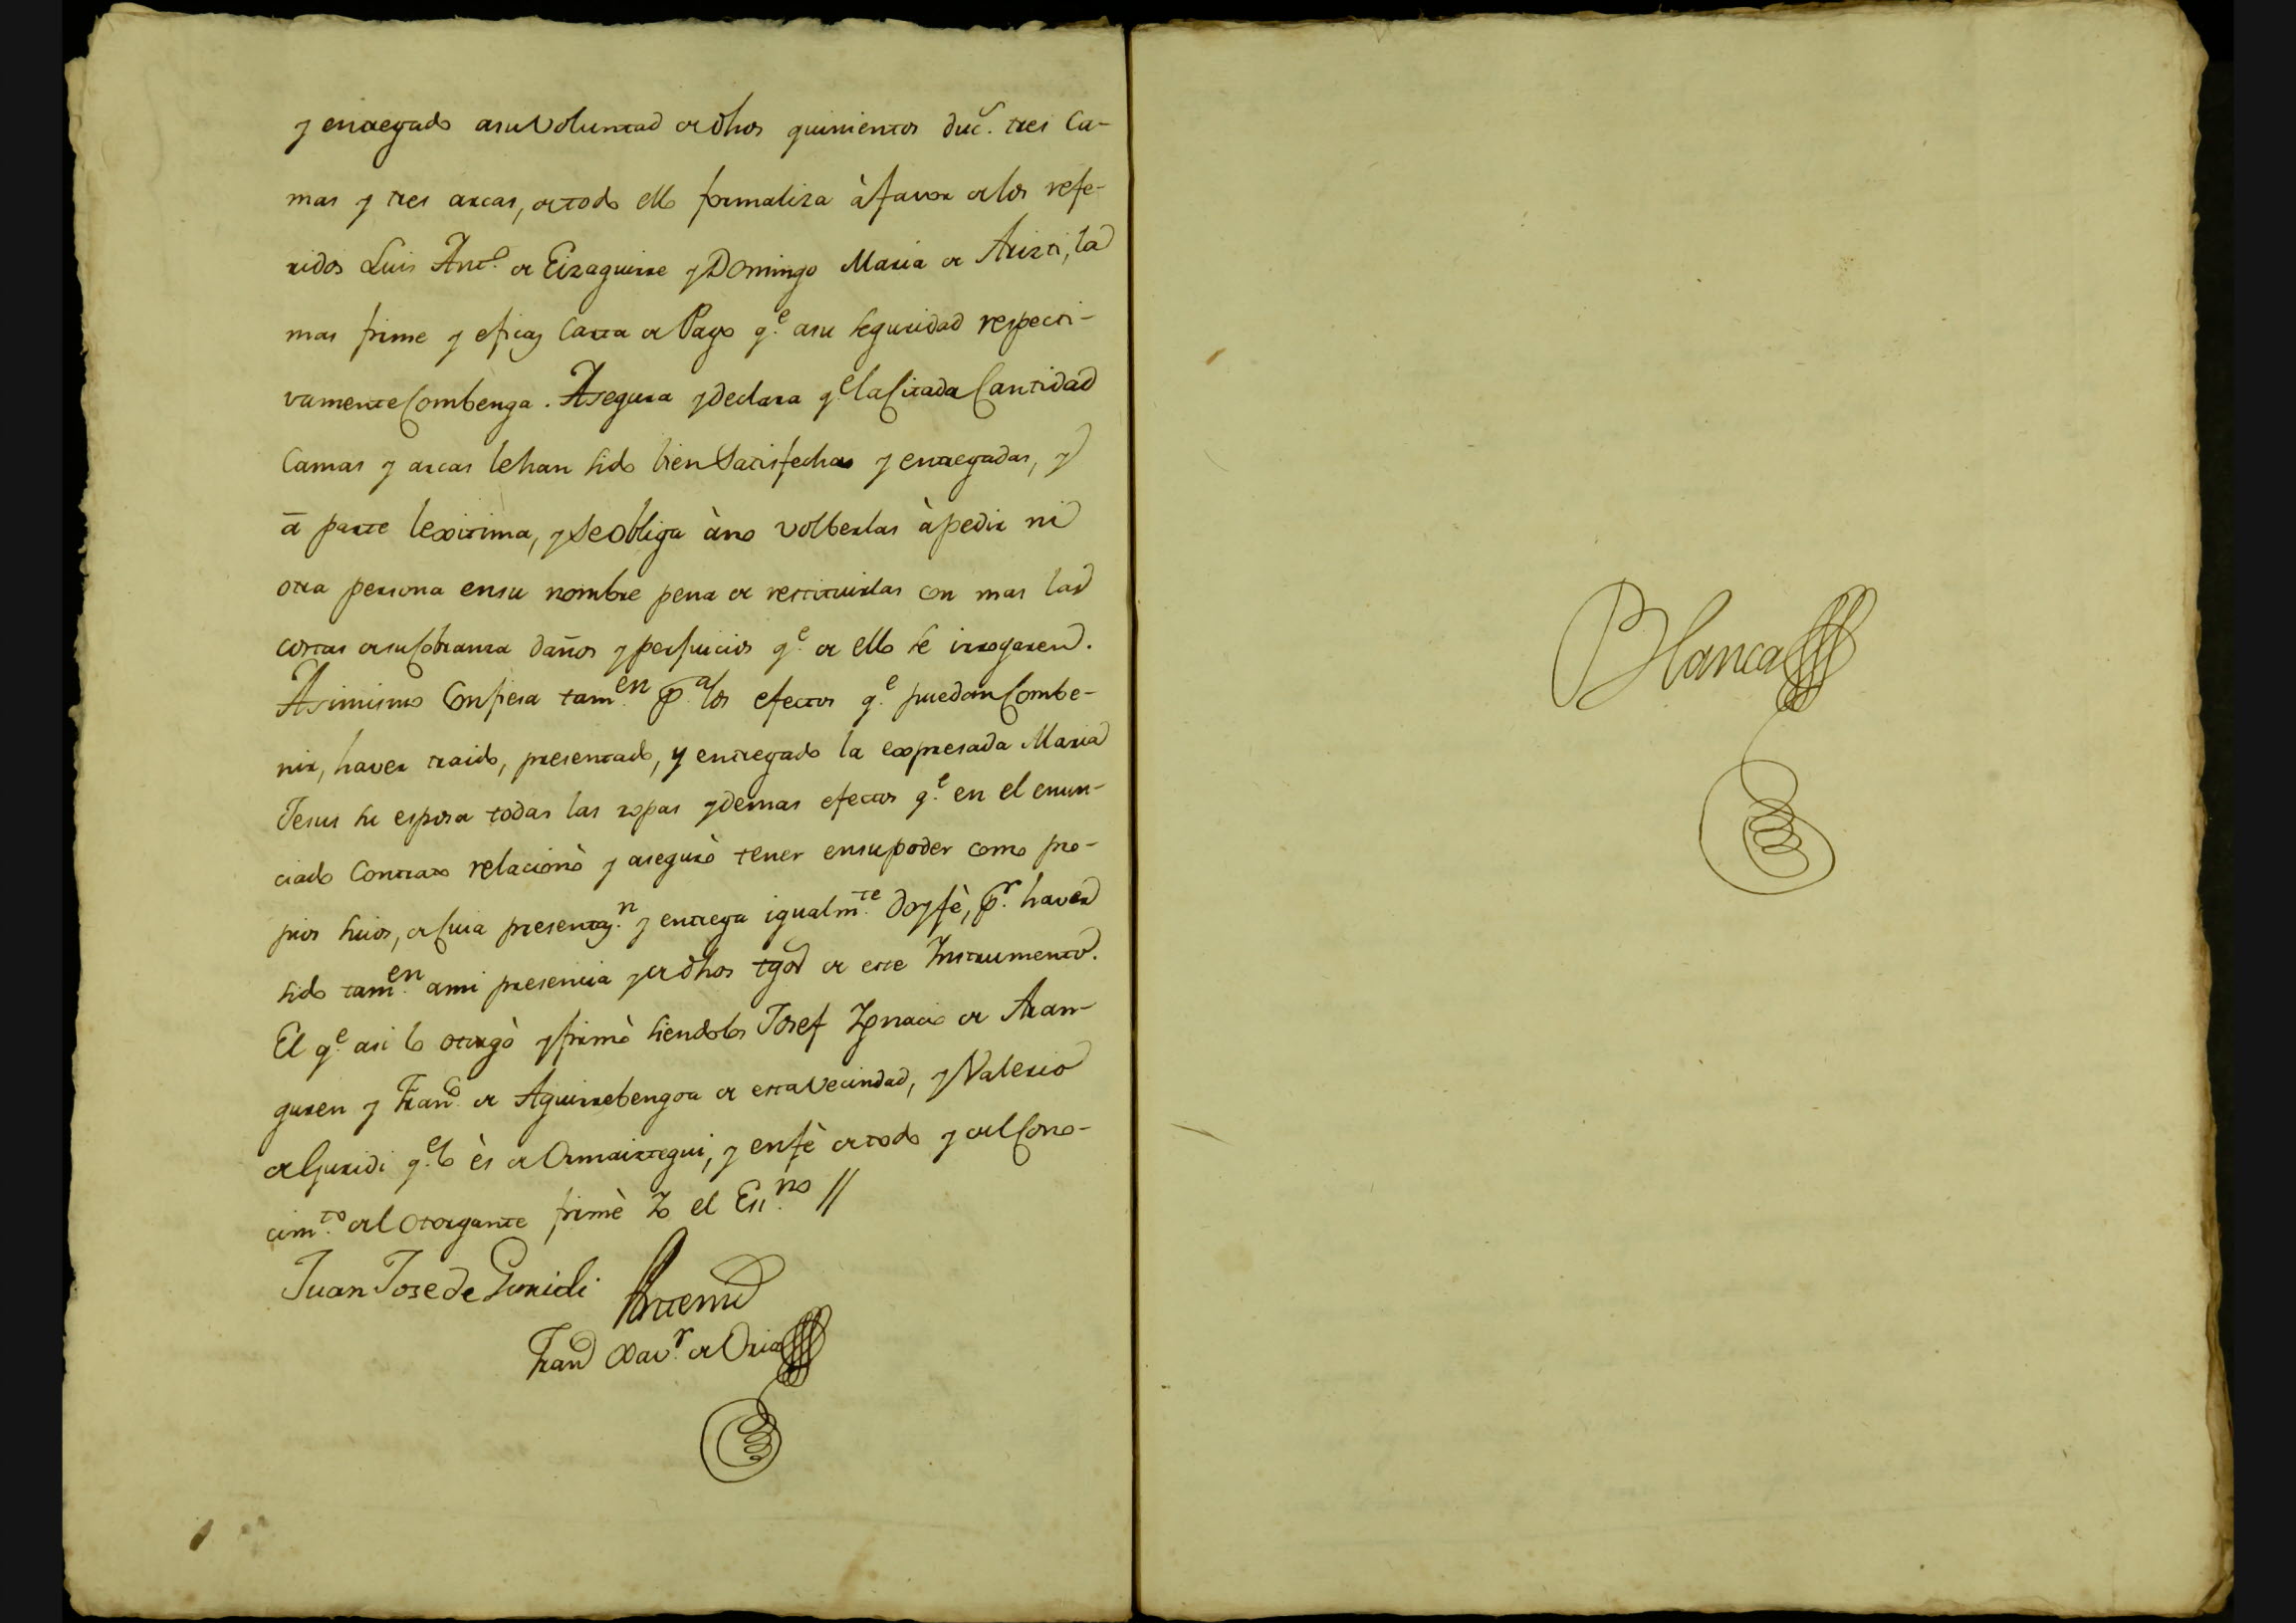 y entregado a su voluntad de dhos quinientos duc.s tres ca-
mas y tres arcas, de todo ello formaliza à favor de los refe-
ridos Luis Ant.o de Eizaguirre y Domingo Maria de Arizti, la
mas firme y eficaz Carta de Pago q.e a su seguridad respecti-
vamente Combenga. Asegura y declara q.e la Citada Cantidad
Camas y arcas le han sido bien Satisfechas y entregadas, y
a parte lexitima, y Se obliga à no volberlas à pedir ni
otra persona en su nombre pena de restituirlas con mas las
costas de su Cobranza daños y perjuicios q.e de ello se irrogaren.
Asimismo Confiesa tam.en p.a los efectos q.e puedan Combe-
nir, haver traido, presentado, y entregado la expresada Maria
Jesus su esposa todas las ropas y demas efectos q.e en el enun-
ciado Contrato relacionò y asegurò tener en su poder como pro-
pios suios, de Cuia presentaz.n y entrega igualm.te doy fè, p.r haver
sido tam.en a mi presencia y de dhos tgos de este Instrumento.
El q.e asi lo otorgò y firmò siendolos Josef Ignacio de Aran-
guren y Fran.co de Aguirrebengoa de esta Vecindad, y Valerio
de Guridi q.e lo ès de Ormaiztegui, y en fè de todo y del Cono-
cim.to del Otorgante firmè Yo el Ess.no //
Juan Jose de Guridi Ante mi
Fran.co Xav.r de Oria
Blanca